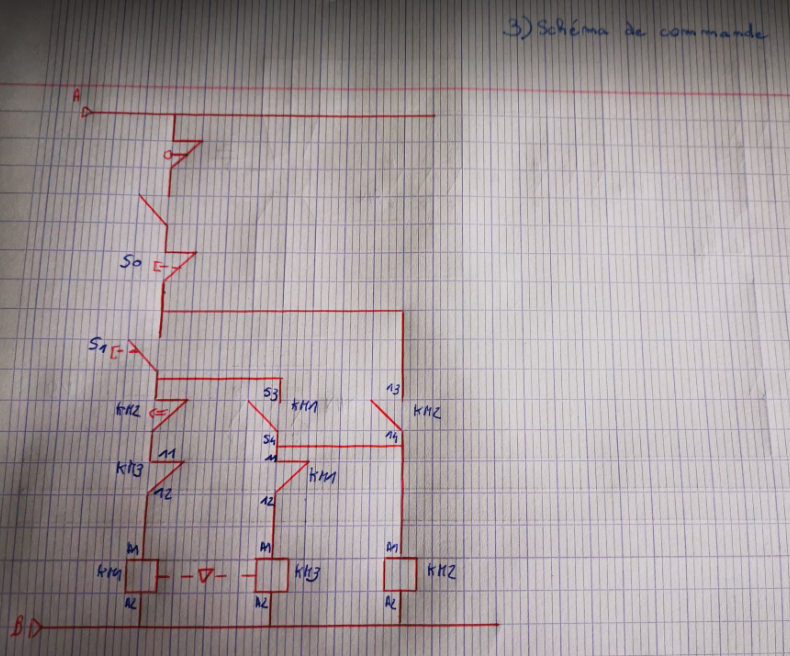 3) Schéma de commande
A
S0
S1
13
53
KM1
KM2
KM2
54
14
KM3
11
11
KM1
12
12
A1
A1
A1
KM1
KM3
KM2
A2
A2
A2
B